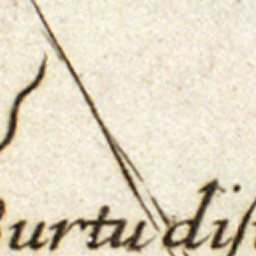 Burtu dist